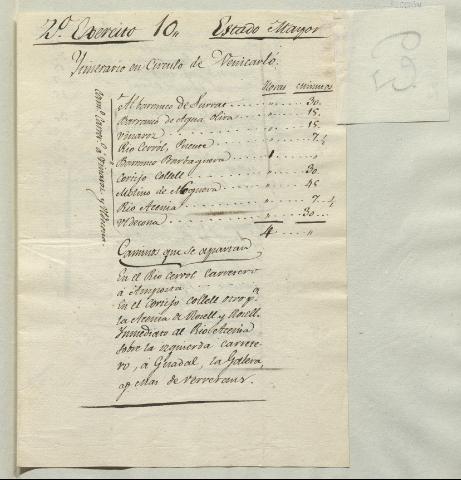 2º. Exército 10,, Estado Mayor
Itinerario en Círculo de Venicarló.
Horas minutos
Al barranco de Surrac .... " .... 30.
Barranco de Agua Oliva .... " .... 15.
Vinaroz .... " .... 15.
Rio Cerról, Puente .... " .... 7.½
Barranco Barbaguera .... 1 .... "
Cortijo Collell .... " .... 30.
Molino de Noguera .... " .... 45.
Rio Acenia .... " .... 7.½
Uldecona .... " .... 30 ..
4 .... "
Caminos que se aparzan
En el Rio Cerrol carretero
á Amposta
En el Cortijo Collell otro pª.
la Acenia de Rosell y Rosell.
Inmediato al Rio Acenia
sobre la izquierda carrete-
ro, a Guadal, la Galera,
Mas de